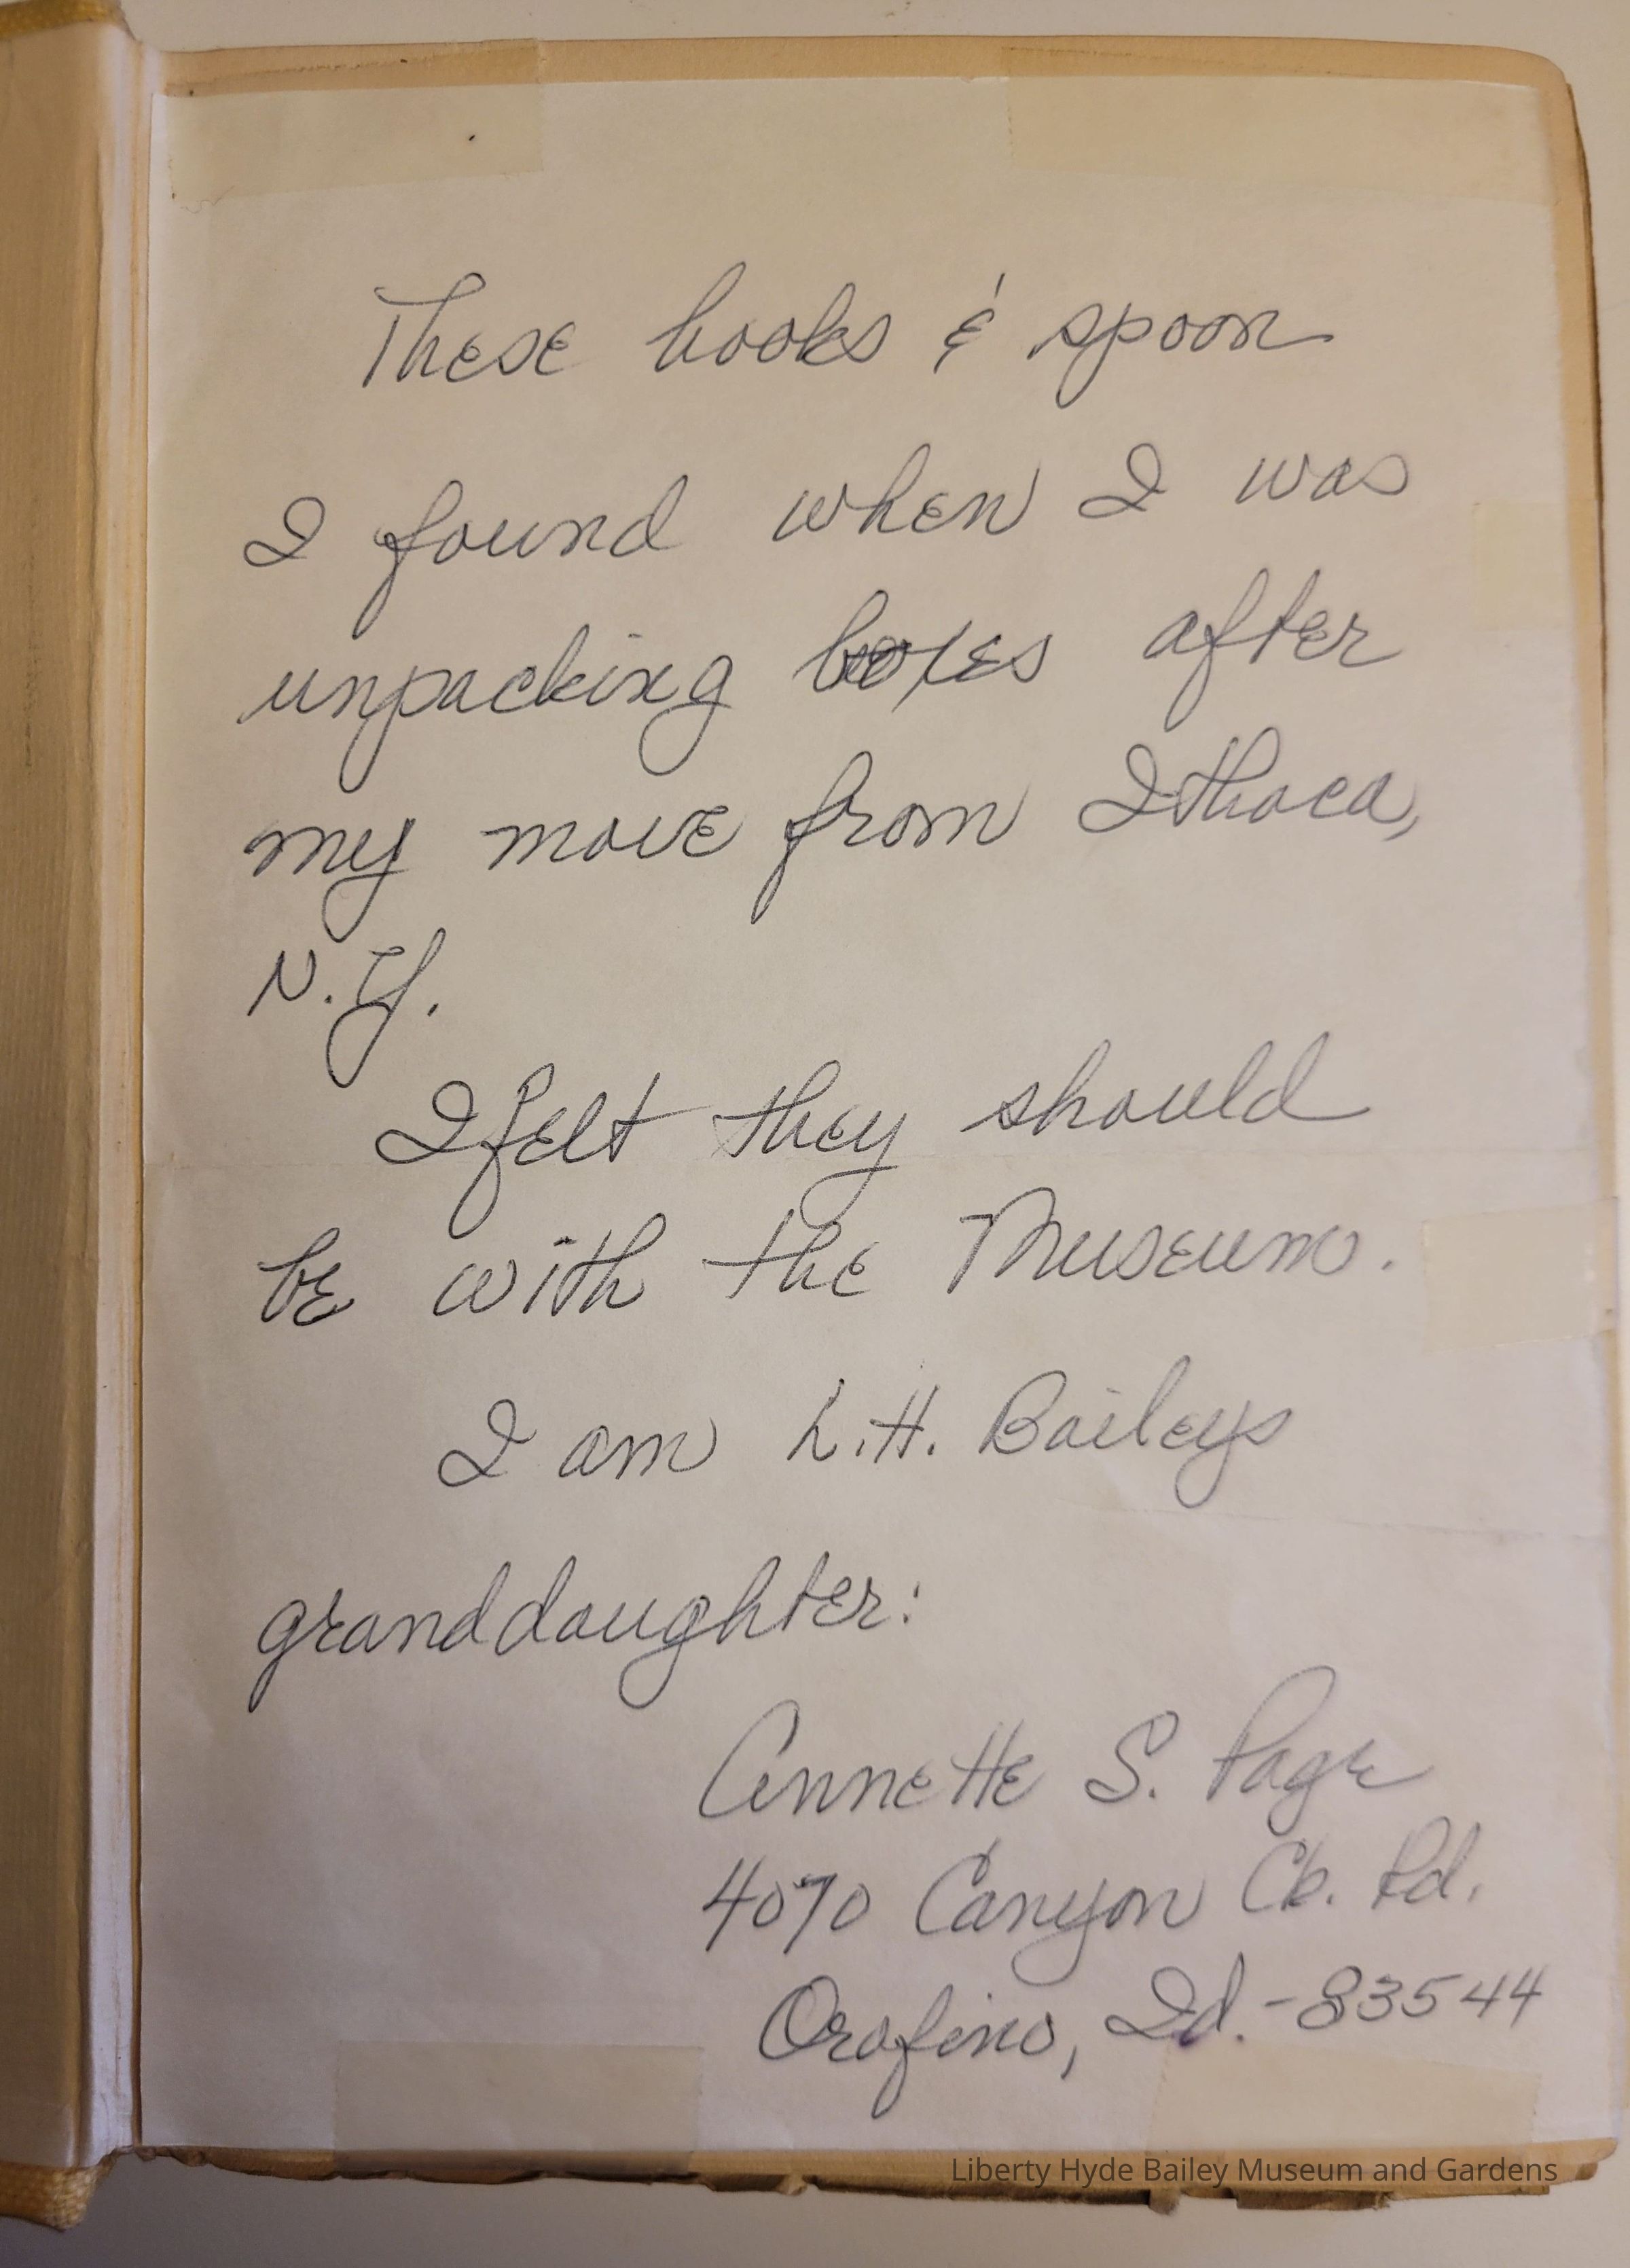 These books & spoon
I found when I was
unpacking boxes after
my move from Ithaca,
N.Y.
I felt they should
be with the Museum.
I am L.H. Baileys
granddaughter:
Annette S. Page
4070 Canyon Ck. Rd.
Orofino, Id. - 83544
Liberty Hyde Bailey Museum and Gardens